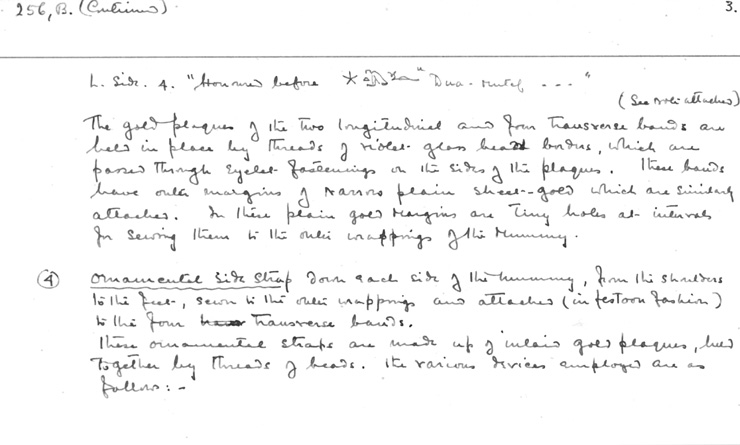 256, B. (Continued) 3.
L. Side. 4. "Honoured before Dua-mutef ... "
(See note attached)
The gold plaques of the two longitudinal and four transverse bands are
held in place by threads of violet glass bead borders, which are
passed through eyelet-fastenings on the sides of the plaques. These bands
have outer margins of narrow plain sheet-gold which are similarly
attached. In these plain gold margins are tiny holes at intervals
for sewing them to the outer wrappings of the mummy.
④ Ornamental Side Strap down each side of the mummy, from the shoulders
to the feet, sewn to the outer wrappings and attached (in festoon fashion)
to the four transverse bands.
These ornamental straps are made up of inlaid gold plaques, held
together by threads of beads. The various devices employed are as
follow:-